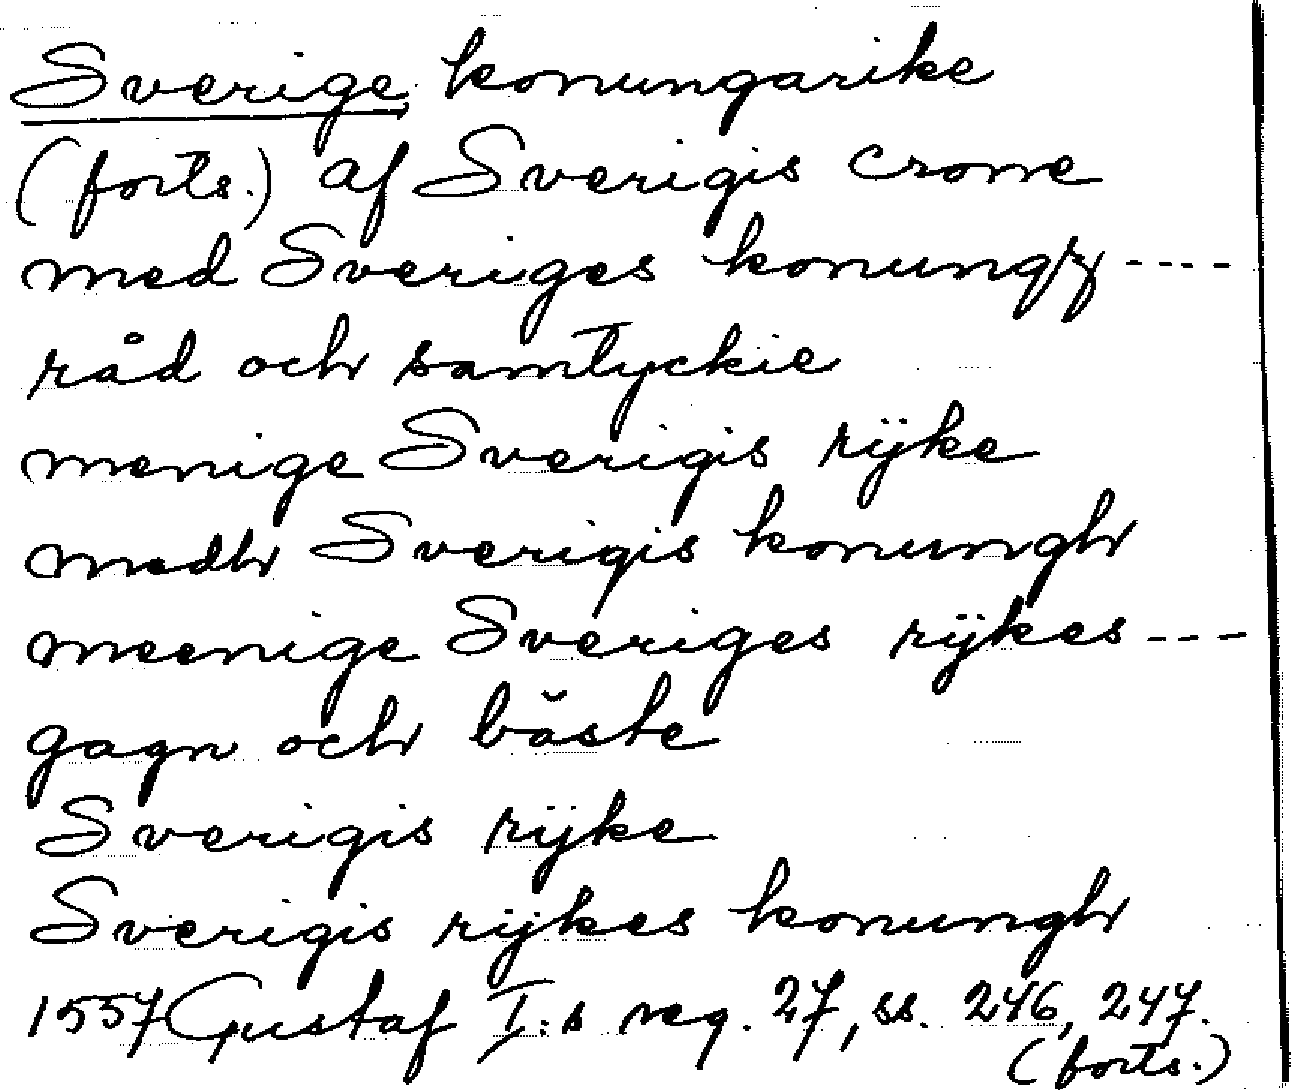 Sverige konungarike
(forts.) af Sverigis crone
med Sveriges konungz ----
råd och samtyckie
menige Sverigis rÿke
medh Sverigis konungh
meenige Sveriges rÿkes ---
gagn och bäste
Sverigis rÿke
Sverigis rÿkes konungh
1557 Gustaf I:s reg. 27, ss. 246, 247.
(forts.)